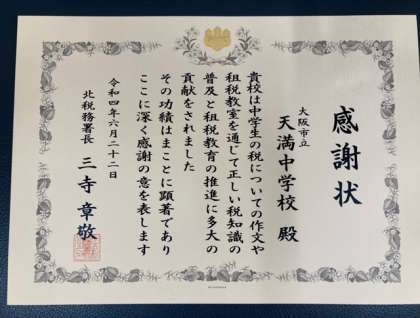 感謝状
大阪市立
天満中学校 殿
貴校は中学生の税についての作文や
租税教室を通じて正しい税知識の
普及と租税教育の推進に多大の
貢献をされました
その功績はまことに顕著であり
ここに深く感謝の意を表します
令和四年六月二十二日
北税務署長 三寺章敬